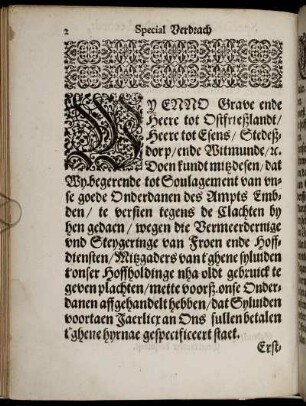 2 Special Verdrach
WY ENNO Grave ende
Heere tot Ostfrießlandt/
Heere tot Esens/ Stedeß-
dorp/ ende Witmunde/ ꝛc.
Doen kundt mitzdesen/ dat
Wy, begerende tot Soulagement van vn-
se goede Onderdanen des Ampts Emb-
den/ te versien tegens de Clachten by
hen gedaen/ wegen die Vermeerdernige
vnd Steygeringe van Froen ende Hoff-
diensten/ Mitzgaders van t'ghene sy luiden
t'onser Hoffholdinge nha oldt gebruick te
geven plachten/ mette voorsß. onse Onder-
danen affgehandelt hebben/ dat Sy luiden
voortaen Jaerlicx an Ons sullen betalen
t'ghene hyrnae gespecificeert staet.
Erst-